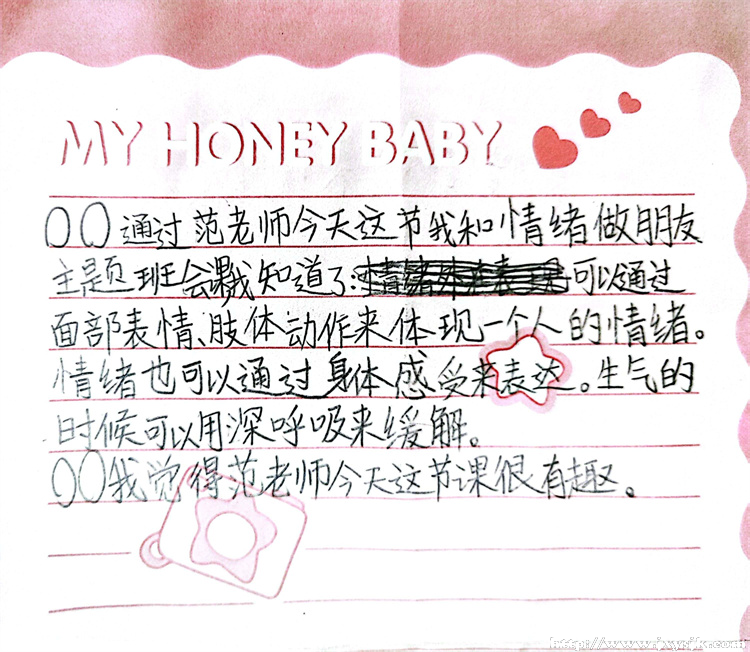 MY HONEY BABY
〇〇通过范老师今天这节我和情绪做朋友
主题班会课我知道了:可以通过
面部表情、肢体动作来体现一个人的情绪。
情绪也可以通过身体感受来表达。生气的
时候可以用深呼吸来缓解。
〇〇我觉得范老师今天这节课很有趣。